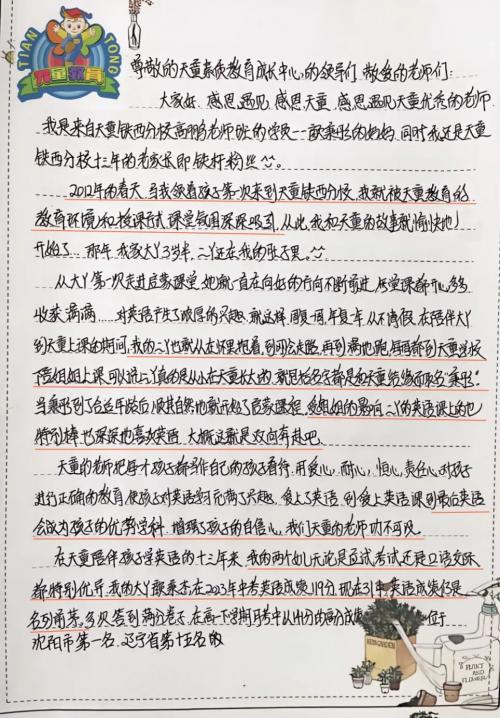 TIAN TONG
天童教育
尊敬的天童素质教育成长中心的领导们、敬爱的老师们：
大家好、感恩遇见、感恩天童、感恩遇见天童优秀的老师
我是来自天童铁西分校高鹏老师班的学员—耿乘彤的妈妈、同时我还是天童
铁西分校十三年的老家长即铁杆粉丝
2012年的春天，当我领着孩子第一次来到天童铁西分校，我就被天童教育的
教育环境和授课方式、课堂氛围深深吸引，从此，我和天童的故事就愉快地
开始了，那年，我家大丫3岁半，二丫还在我的肚子里。
从大丫第一次走进启蒙课堂，她就一直在向好的方向不断前进，每堂课都开心多多
收获满满……对英语产生了浓厚的兴趣，就这样，周复一周，年复一年，从不请假，在陪伴大丫
到天童上课的期间，我的二丫也就从在怀里抱着，到可会走路，再到满地跑，每周都到天童学校
陪姐姐上课，可以说二丫真的是从小在天童长大的，就连起名字都是和天童结缘而取名"乘彤"。
当乘彤到了合适年龄后，顺其自然也就开始了启蒙课程，受姐姐的影响，二丫的英语课上的也
特别棒，也深深地喜欢英语，大概这就是双向奔赴吧、
天童的老师把每个孩子都当作自己的孩子看待，用爱心，耐心，恒心，责任心，对孩子
进行正确的教育，使孩子对英语学习充满了兴趣，爱上了英语，到爱上英语课到最后英语
会成为孩子的优势学科，增强了孩子的自信心，我们天童的老师功不可没。
在天童陪伴孩子学英语的十三年来，我的两个女儿无论是应试考试，还是口语交际
都特别优异，我的大丫耿乘杰，在2023年中考英语成绩119分，现在31中英语成绩仍是
名列前茅，多次答到满分卷子，在高一下学期月考中以
沈阳市第一名、辽宁省第十五名的
PLANT AND FLOWER